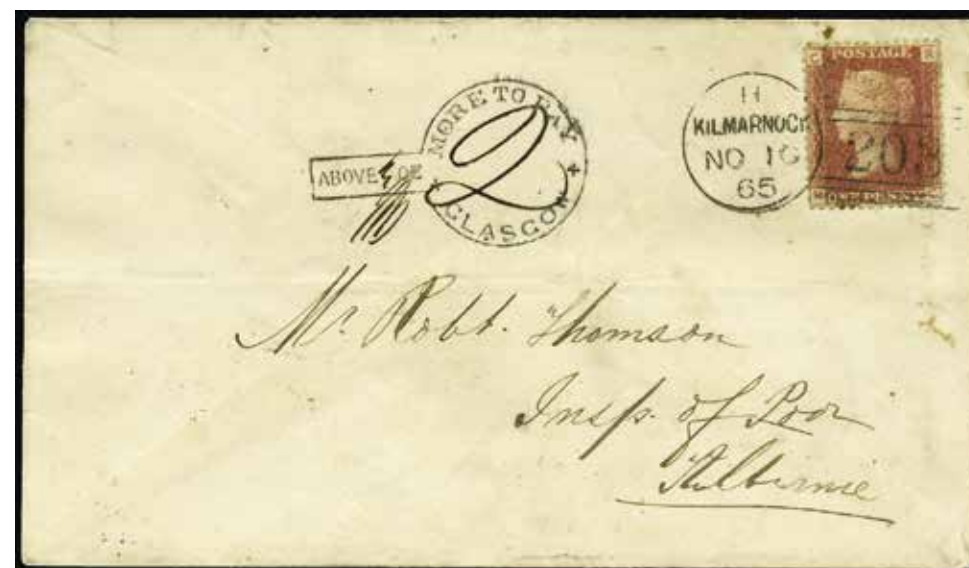 MORE TO PAY
2
GLASGOW
ABOVE OZ
H
KILMARNOCK
NO 16
65
POSTAGE
20
ONE PENNY
Mr. Robt. Thomson
Insp. of Poor
Kilbirnie